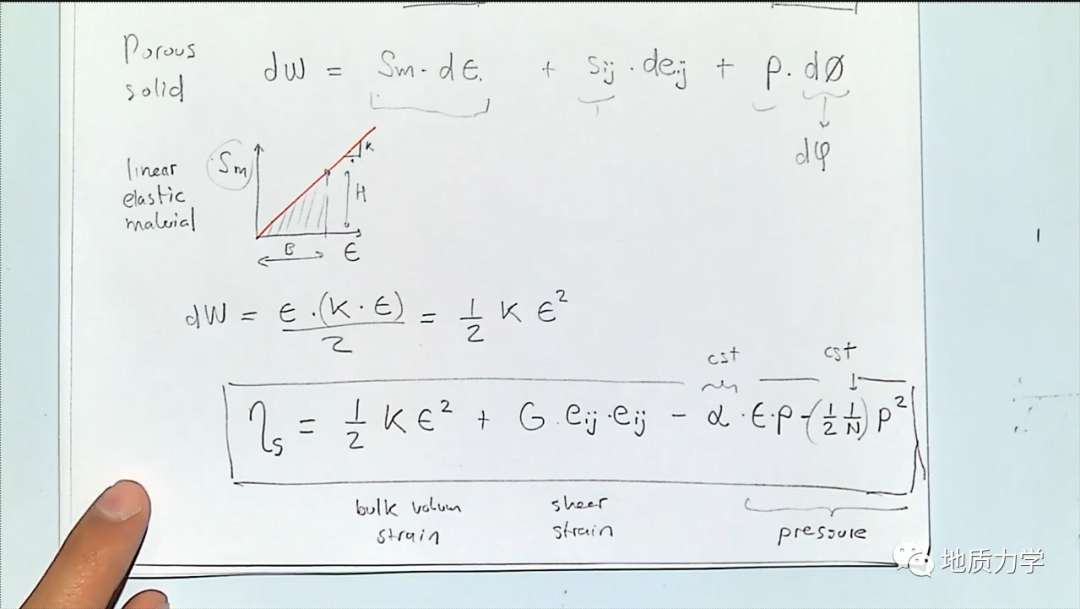 Porous solid
dW = Sm · dϵ + sij · deij + p · dØ
dφ
linear elastic material
Sm
K
H
B
ϵ
dW = ϵ · (K · ϵ) / 2 = 1/2 K ϵ²
cst
cst
ηs = 1/2 K ϵ² + G · eij · eij - α · ϵ · p - (1/2 1/N) p²
bulk volum strain
sheer strain
pressure
地质力学